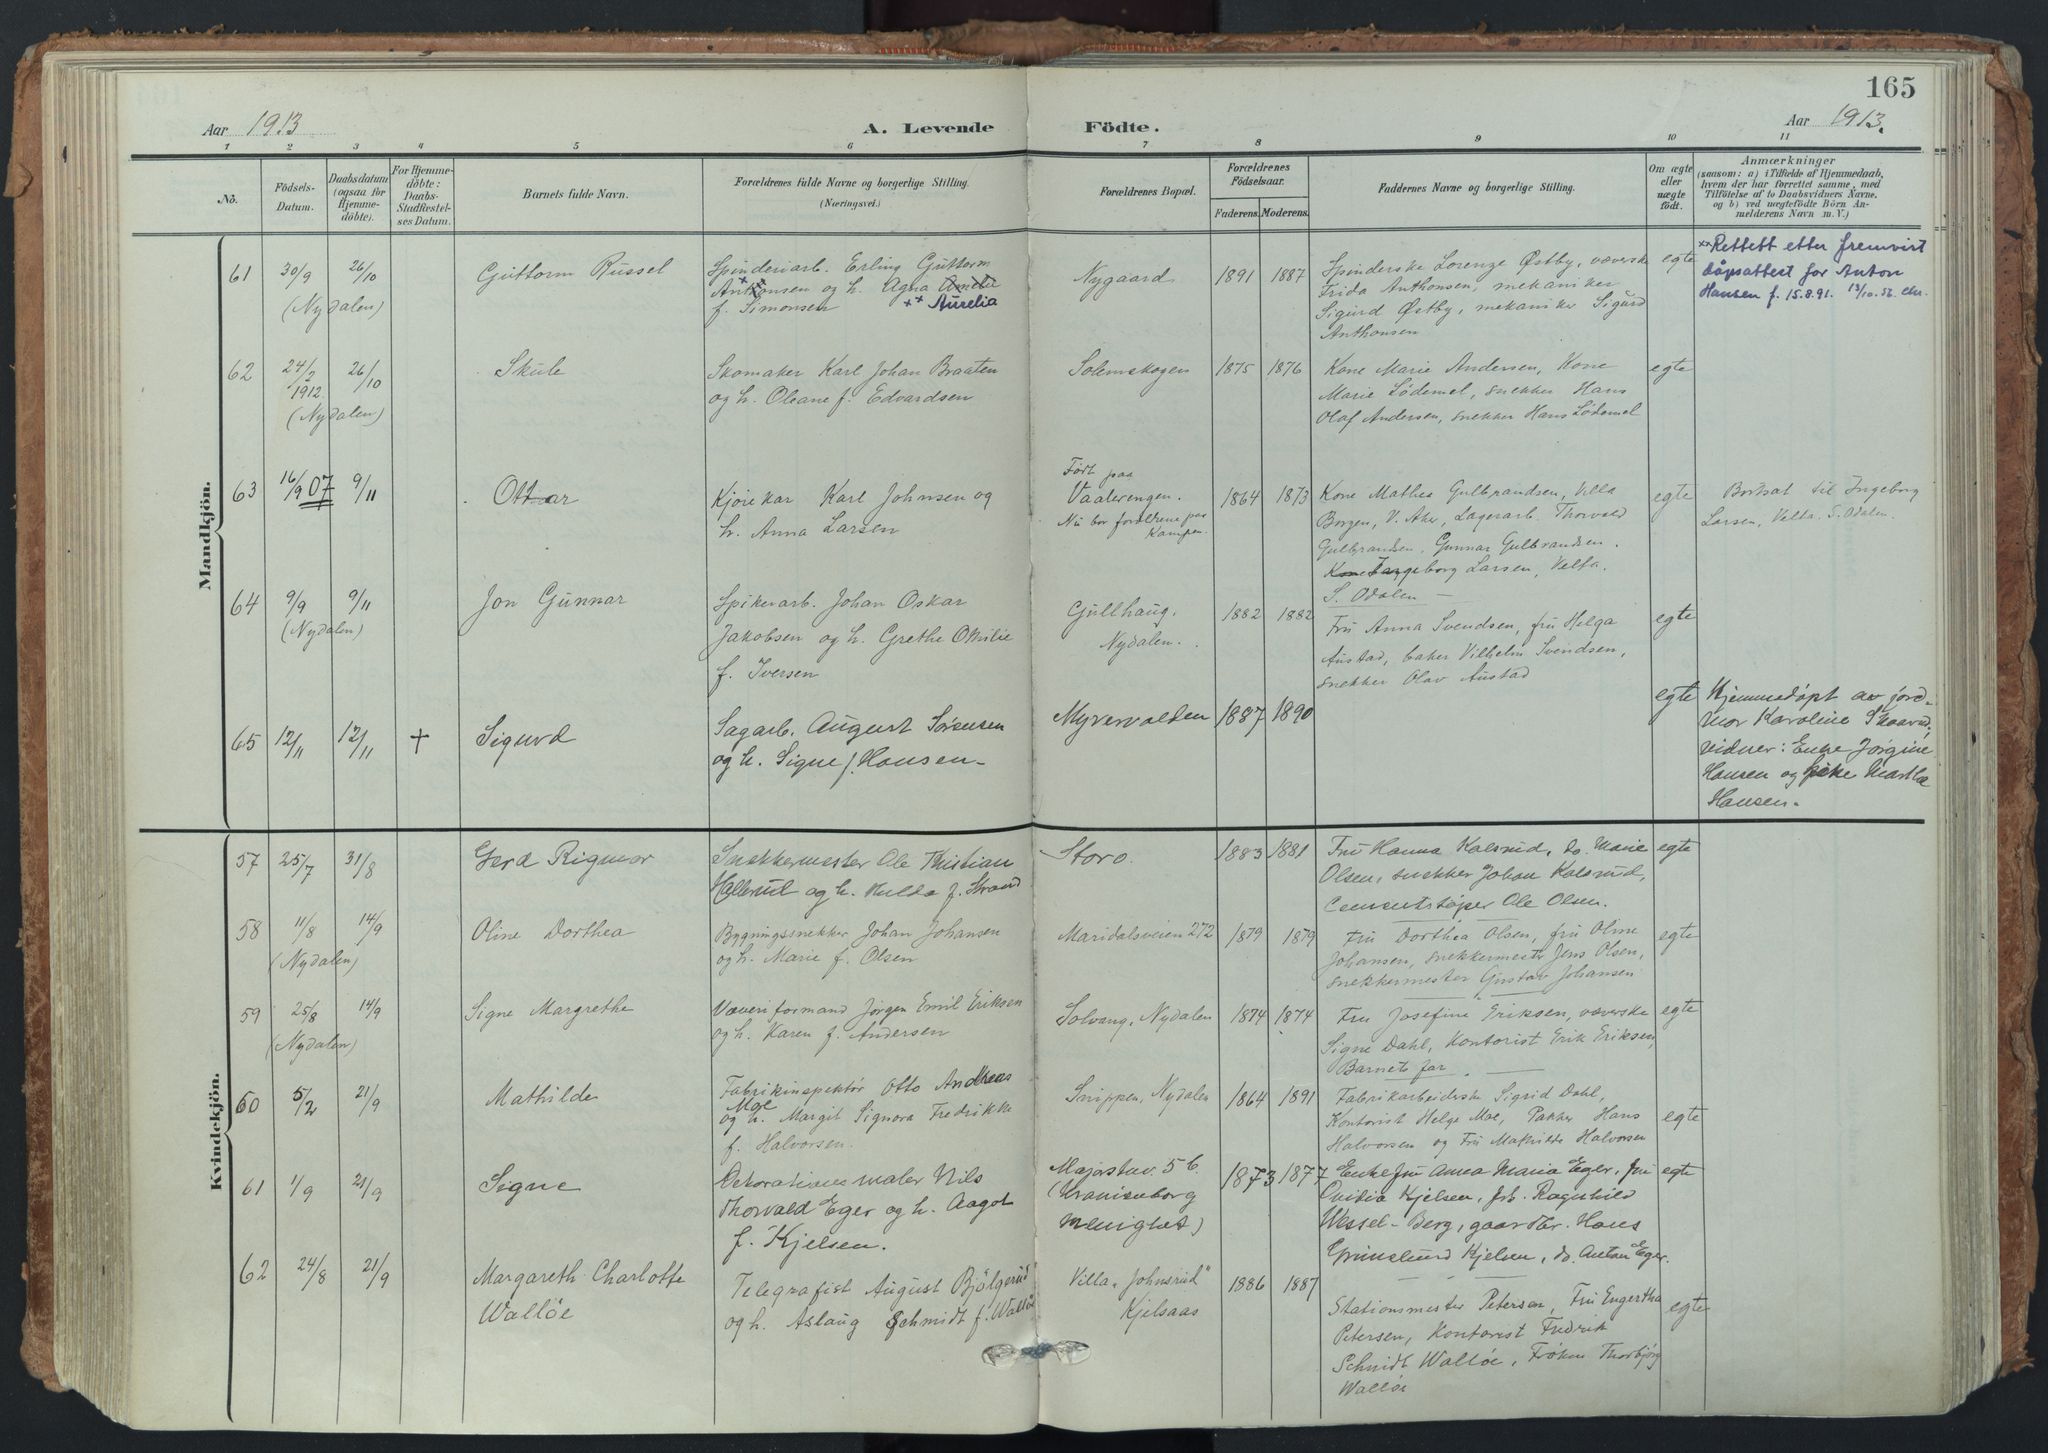 165
Aar 1913
A. Levende
Födte.
Aar 1913.
1 2 3 4 5 6 7 8 9 10 11
No.
Födsels-
Datum.
Daabsdatum
(ogsaa for
Hjemme-
döbte).
For Hjemme-
döbte:
Daabs-
Stadfæstel-
ses Datum.
Barnets fulde Navn.
Forældrenes fulde Navne og borgerlige Stilling.
(Næringsvei.)
Forældrenes Bopæl.
Forældrenes
Födselsaar.
Faderens. Moderens.
Faddernes Navne og borgerlige Stilling.
Om ægte
eller
uægte
födt.
Anmærkninger
(saasom: a) i Tilfælde af Hjemmedaab,
hvem der har forrettet samme, med
Tilföielse af to Daabsvidners Navne,
og b) ved uægtefödte Börn An-
melderens Navn m. V.)
Mandkjön.
61 30/9 26/10
(Nydalen)
Guttorm Russel
Spinderiarb. Erling Guttorm
Anthonsen og h. Agna Amelie
f. Simonsen xx Aurelia
Nygaard
1891 1887
Spinderske Lorenze Østby, væverske
Frida Anthonsen, mekaniker
Sigurd Østby, mekaniker Sigurd
Anthonsen
egte
xx Rettett etter fremvist
dåpsattest for Anton
Hansen f. 15.8.91. 13/10.56.
62 24/2 26/10
1912.
(Nydalen)
Skule
Skomaker Karl Johan Braaten
og h. Oleane f. Edvardsen
Solemskogen
1875 1876
Kone Marie Andersen, Kone
Marie Lödemel, snekker Hans
Olaf Andersen, snekker Hans Lödemel
egte
63 16/9 07 9/11
Ottar
Kjörekar Karl Johnsen og
h. Anna Larsen
Født paa
Vaalerengen.
Nu bor foreldrene paa
Kampen.
1864 1873
Kone Mathea Gulbrandsen, Villa
Borgen, V. Aker, Lagerarb. Thorvald
Gulbrandsen, Gunnar Gulbrandsen.
Kone Ingeborg Larsen, Velta.
S. Odalen
egte
Bortsat til Ingeborg
Larsen, Velta. S. Odalen.
64 9/9 9/11
(Nydalen)
Jon Gunnar
Spikerarb. Johan Oskar
Jakobsen og h. Grethe Otilie
f. Iversen
Gullhaug.
Nydalen.
1882 1882
Fru Anna Svendsen, fru Helga
Austad, baker Vilhelm Svendsen,
snekker Olav Austad
egte
65 12/11 12/11 +
Sigurd
Sagarb. August Sørensen
og h. Signe f. Hansen
Myrervolden
1887 1890
egte
Hjemmedøpt av jord-
mor Karoline
vidner: Enke Jørgine
Hansen og pike Martha
Hansen.
Kvindekjön.
57 25/7 31/8
Gerd Rigmor
Snekkermester Ole Kristian
Hallerud og h. Hulda f. Strand
Storo.
1883 1881
Fru Hanna Kalsrud, do. Marie
Olsen, snekker Johan Kalsrud,
Cementstøper Ole Olsen.
egte
58 11/8 14/9
(Nydalen)
Oline Dorthea
Bygningssnekker Johan Johansen
og h. Marie f. Olsen
Maridalsveien 272
1879 1879
Fru Dorthea Olsen, fru Oline
Johansen, snekkermester Jens Olsen,
snekkermester Gustav Johansen
egte
59 25/8 14/9
(Nydalen)
Signe Margrethe
Væveriformand Jørgen Emil Eriksen
og h. Karen f. Andersen
Solvang, Nydalen
1874 1874
Fru Josefine Eriksen, væverske
Signe Dahl, Kontorist Erik Eriksen,
Barnets far.
egte
60 5/2 21/9
Mathilde
Fabrikinspektør Otto Andreas
Moe
og h. Margit Signora Fredrikke
f. Halvorsen.
Snippen, Nydalen
1864 1891
Fabrikarbeiderske Sigrid Dahl,
Kontorist Helge Moe, Pakker Hans
Halvorsen og Fru Mathilde Halvorsen
egte
61 1/9 21/9
Signe
Dekorationsmaler Nils
Thorvald Eger og h. Aagot
f. Kjelsen.
Majorstuv. 5 b.
(Uranienborg
menighet)
1873 1877
Enkefru Anna Maria Eger, fru
Ovidia Kjelsen, frk. Ragnhild
Wessel-Berg, gaardbr. Hans
Grinslund Kjelsen, do. Anton Eger.
egte
62 24/8 21/9
Margareth Charlotte
Walløe
Telegrafist August Bjölgerud
og h. Aslaug Schmidt f. Walløe
Villa "Johnsrud"
Kjelsaas
1886 1887
Stationsmester Petersen, Fru Engertha
Petersen, Kontorist Fredrik
Schmidt Walløe, Frøken Thorbjørg
Walløe
egte